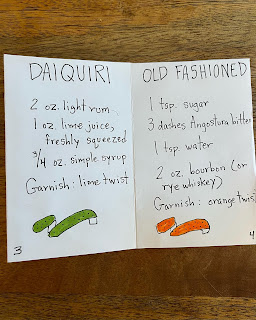 DAIQUIRI
2 oz. light rum
1 oz. lime juice,
freshly squeezed
3/4 oz. simple syrup
Garnish: lime twist
3
OLD FASHIONED
1 tsp. sugar
3 dashes Angostura bitter
1 tsp. water
2 oz. bourbon (or
rye whiskey)
Garnish: orange twist
4